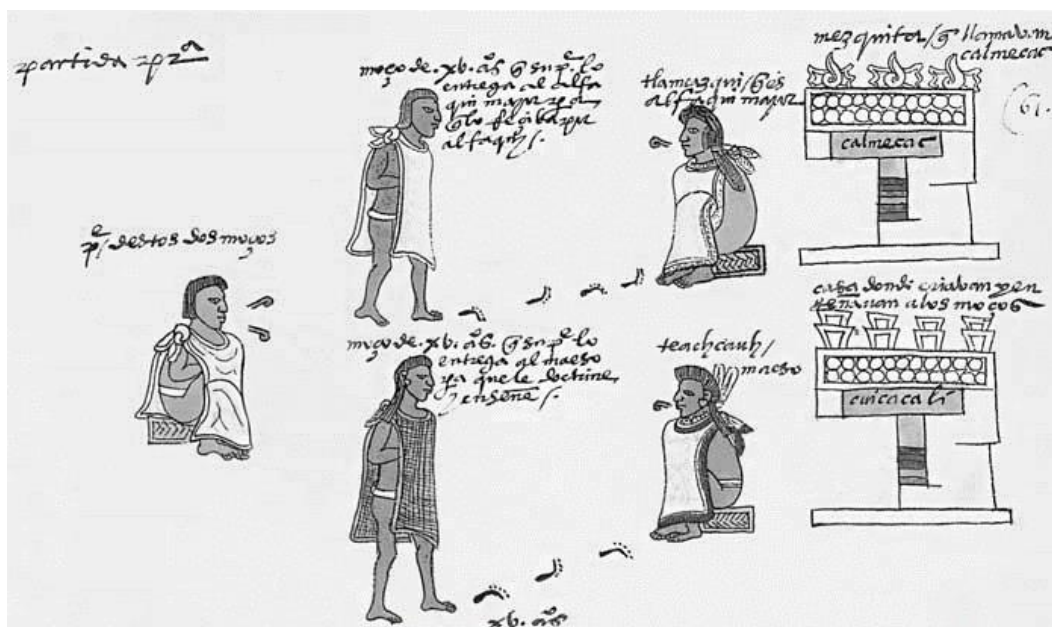 partida pra
moço de . xv . aōs q̄ su pe lo
entrega al alfa
qui mayor pa
q̄ lo reçiba por
alfaqui /.
tlamazqui / q̄ es
alfaqui mayor
mezquita / q̄ llamavan
calmecac
61.
calmecac
pe / destos dos moços
moço de . xv . aōs . q̄ su pe lo
entrega al maeso
pa que le doctrine
y enseñe /.
teachcauh /
maeso
casa donde criavan y en
señavan a los moços
cuicacali
xv . aōs